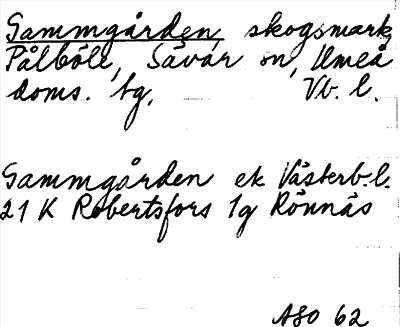 Gammgården, skogsmark,
Pålböle, Sävar sn, Umeå
doms. tg, Vb. l.
Gammgården ek Västerb. l.
21 K Robertsfors 1g Rönnäs
ASO 62